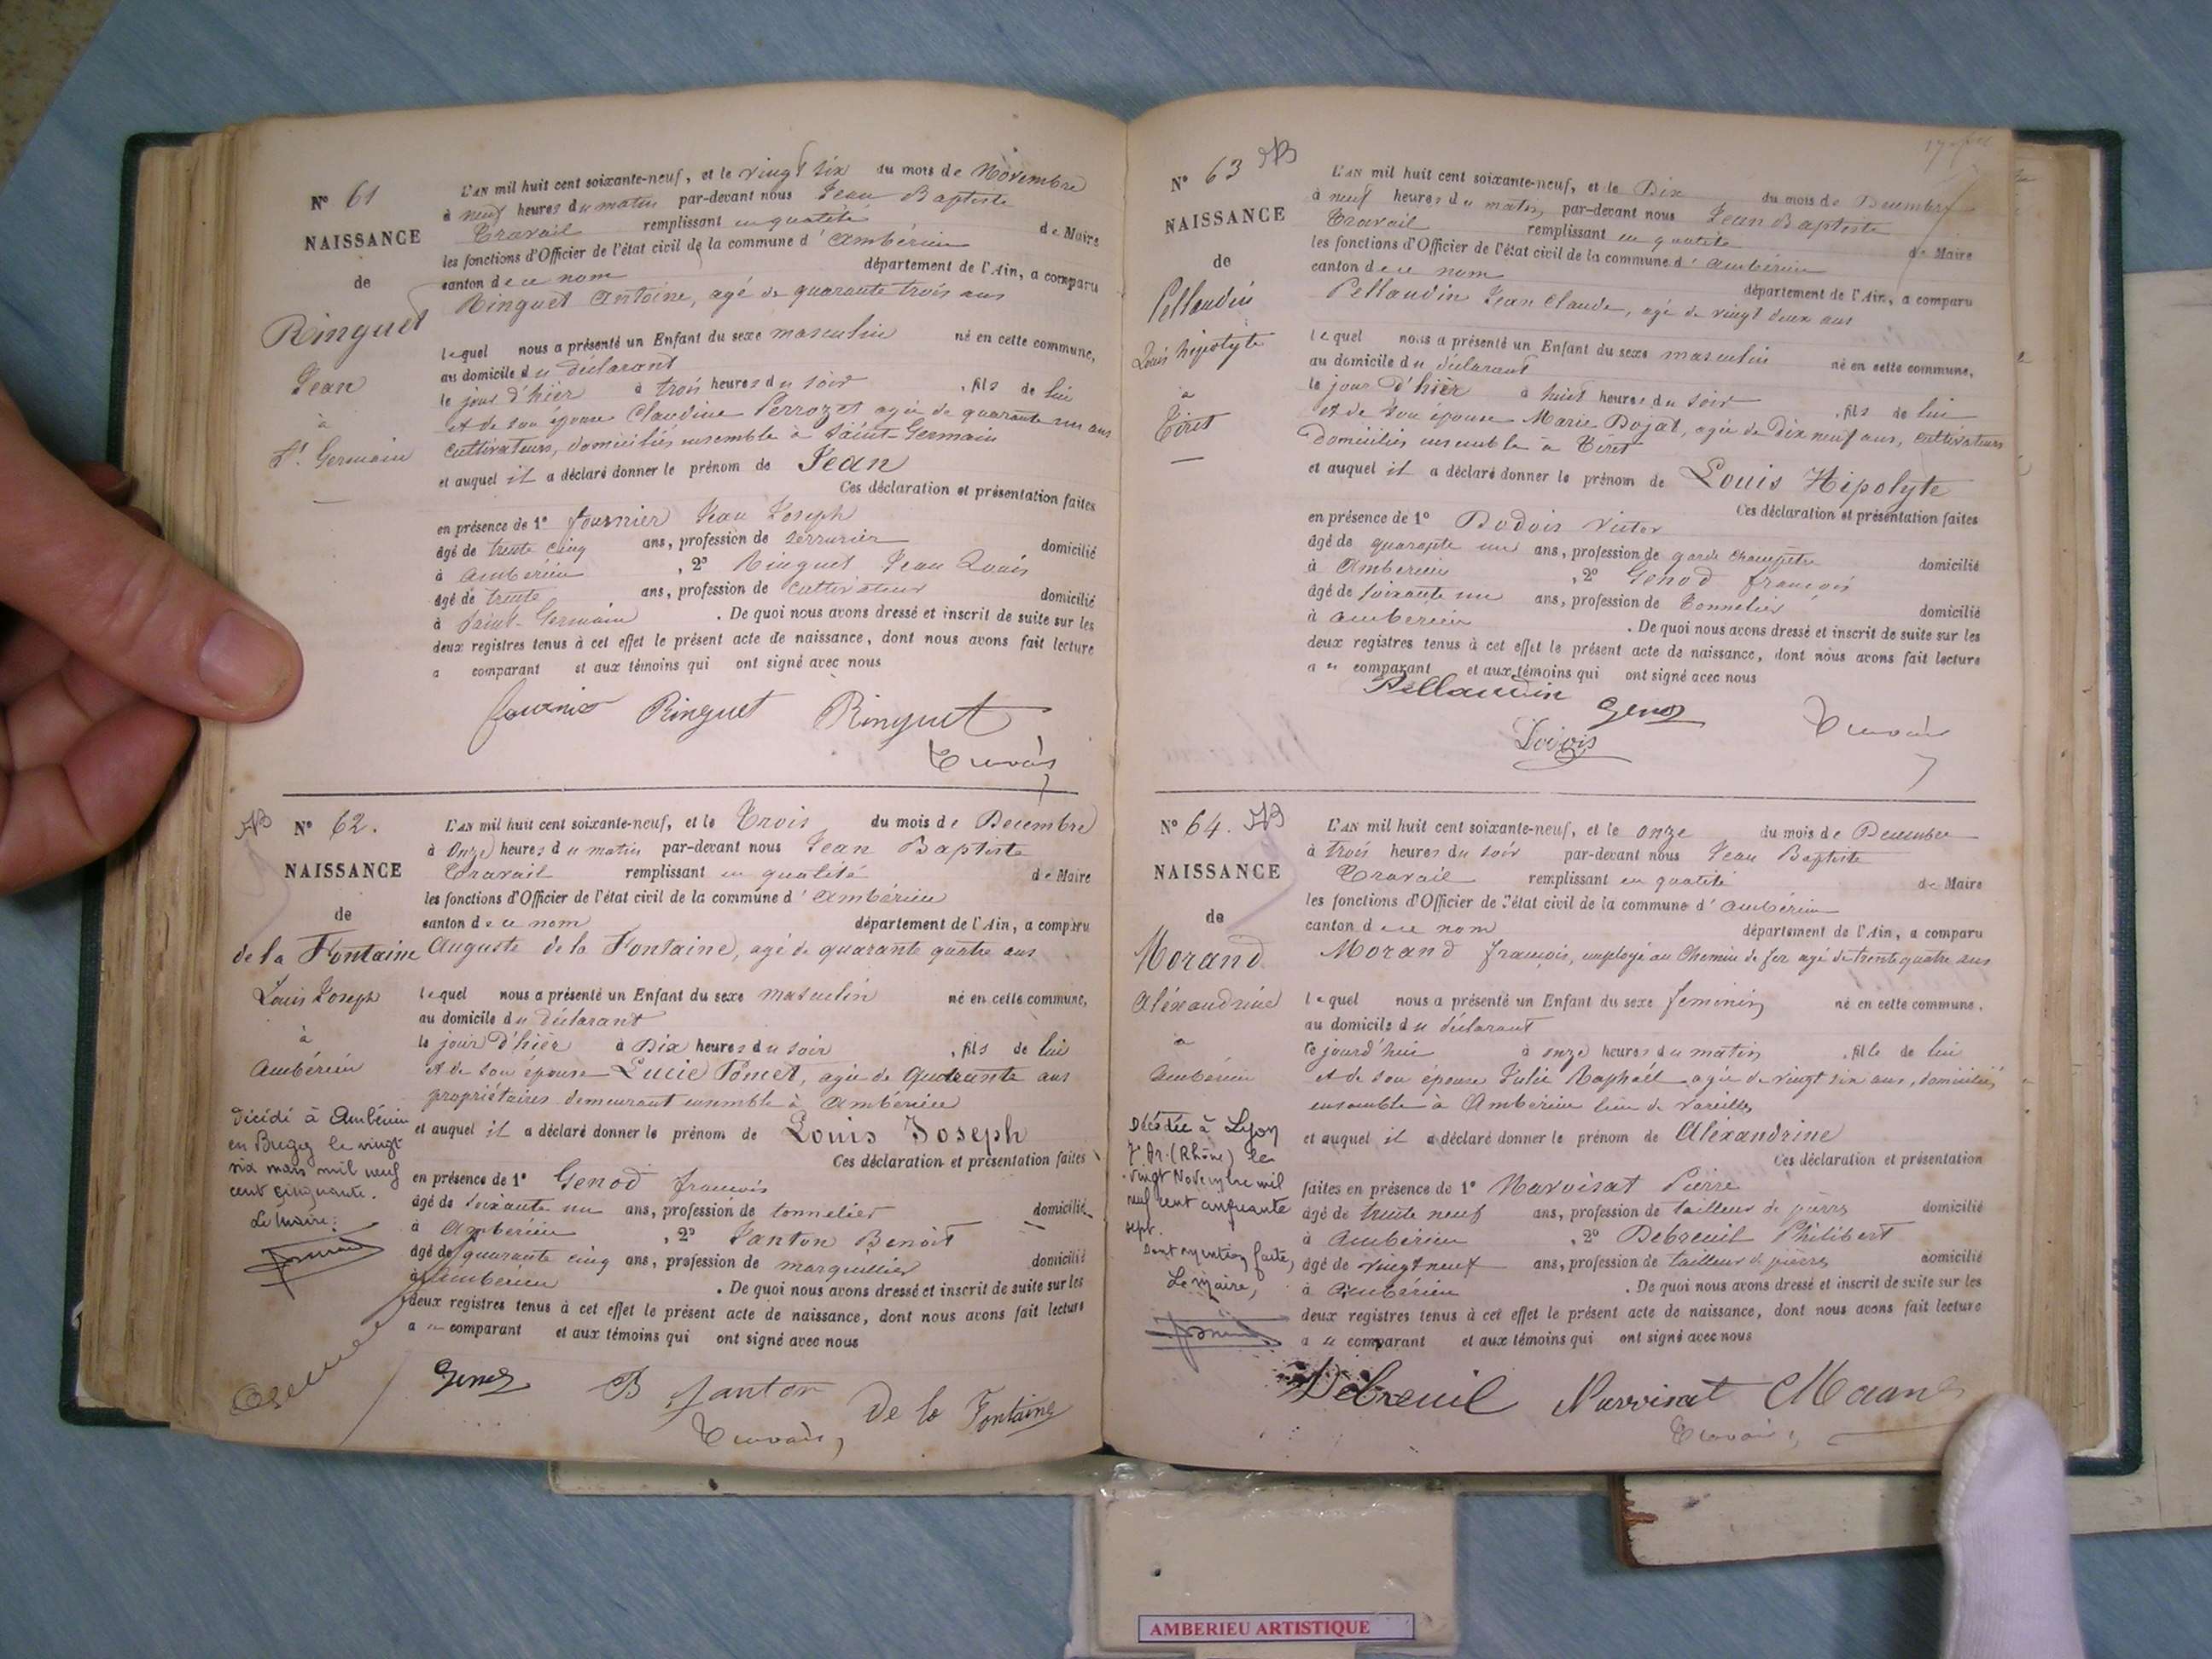 N° 61
NAISSANCE
de
Ringuet
Jean
à
St. Germain
L'AN mil huit cent soixante-neuf, et le vingt six du mois de Novembre
à neuf heures du matin par-devant nous Jean Baptiste
Travail remplissant en qualité de Maire
les fonctions d'Officier de l'état civil de la commune d'Ambérieu
canton de ce nom département de l'Ain, a comparu
Ringuet Antoine, agé de quarante trois ans
lequel nous a présenté un Enfant du sexe masculin né en cette commune,
au domicile du déclarant
le jour d'hier à trois heures du soir, fils de lui
et de son épouse Claudine Perrozet agée de quarante un ans
cultivateurs, domiciliés ensemble à Saint-Germain
et auquel il a déclaré donner le prénom de Jean
Ces déclaration et présentation faites
en présence de 1° fournier Jean Joseph
âgé de trente cinq ans, profession de serrurier domicilié
à Ambérieu, 2° Ringuet Jean Louis
âgé de trente ans, profession de cultivateur domicilié
à Saint-Germain. De quoi nous avons dressé et inscrit de suite sur les
deux registres tenus à cet effet le présent acte de naissance, dont nous avons fait lecture
a comparant et aux témoins qui ont signé avec nous
fournier Ringuet Ringuet
Travail
N° 62.
NAISSANCE
de
de la Fontaine
Louis Joseph
à
Ambérieu
Décédé à Ambérieu
en Bugey le vingt
six mars mil neuf
cent cinquante.
Le Maire:
L'AN mil huit cent soixante-neuf, et le Trois du mois de Decembre
à Onze heures du matin par-devant nous Jean Baptiste
Travail remplissant en qualité de Maire
les fonctions d'Officier de l'état civil de la commune d'Ambérieu
canton de ce nom département de l'Ain, a comparu
Auguste de la Fontaine, agé de quarante quatre ans
lequel nous a présenté un Enfant du sexe masculin né en cette commune,
au domicile du déclarant
le jour d'hier à Dix heures du soir, fils de lui
et de son épouse Lucie Pomet, agée de quarante ans
propriétaires demeurant ensemble à Ambérieu
et auquel il a déclaré donner le prénom de Louis Joseph
Ces déclaration et présentation faites
en présence de 1° Genod francois
âgé de soixante un ans, profession de tonnelier domicilié
à Ambérieu, 2° Janton Benoit
âgé de quarante cinq ans, profession de marguillier domicilié
à Ambérieu. De quoi nous avons dressé et inscrit de suite sur les
deux registres tenus à cet effet le présent acte de naissance, dont nous avons fait lecture
a u comparant et aux témoins qui ont signé avec nous
Genod B Janton De la Fontaine
Travail
N° 63
NAISSANCE
de
Pellaudin
Louis hipolyte
à
Tiret
L'AN mil huit cent soixante-neuf, et le Dix du mois de Decembre
à neuf heures du matin, par-devant nous Jean Baptiste
Travail remplissant en qualité de Maire
les fonctions d'Officier de l'état civil de la commune d'Ambérieu
canton de ce nom département de l'Ain, a comparu
Pellaudin Jean Claude, agé de vingt deux ans
lequel nous a présenté un Enfant du sexe masculin né en cette commune,
au domicile du déclarant
le jour d'hier à huit heures du soir, fils de lui
et de son épouse Marie Dojat, agée de Dix neuf ans, cultivateurs
domiciliés ensemble à Tiret
et auquel il a déclaré donner le prénom de Louis Hipolyte
Ces déclaration et présentation faites
en présence de 1° Dodois victor
âgé de quarante un ans, profession de garde champêtre domicilié
à Ambérieu, 2° Genod françois
âgé de soixante un ans, profession de Tonnelier domicilié
à Ambérieu. De quoi nous avons dressé et inscrit de suite sur les
deux registres tenus à cet effet le présent acte de naissance, dont nous avons fait lecture
a u comparant et aux témoins qui ont signé avec nous
Pellaudin Genod
Travail
N° 64.
NAISSANCE
de
Morand
Aléxandrine
à
Ambérieu
Décédée à Lyon
7e Ar. (Rhône) le
vingt Novembre mil
neuf cent cinquante
sept.
Dont mention faite,
Le Maire,
L'AN mil huit cent soixante-neuf, et le onze du mois de Decembre
à trois heures du soir par-devant nous Jean Baptiste
Travail remplissant en qualité de Maire
les fonctions d'Officier de l'état civil de la commune d'Ambérieu
canton de ce nom département de l'Ain, a comparu
Morand françois, employé au Chemin de fer agé de trente quatre ans
lequel nous a présenté un Enfant du sexe feminin né en cette commune,
au domicile du déclarant
ce jourd'hui à onze heures du matin, fille de lui
et de son épouse Julie Raphaël agée de vingt six ans, domiciliés
ensemble à Ambérieu lieu de Vareilles
et auquel il a déclaré donner le prénom de Aléxandrine
Ces déclaration et présentation
faites en présence de 1° Narvoisat Pierre
âgé de trente neuf ans, profession de tailleur de pierre domicilié
à Ambérieu, 2° Debreuil Philibert
âgé de vingt neuf ans, profession de tailleur de pierres domicilié
à Ambérieu. De quoi nous avons dressé et inscrit de suite sur les
deux registres tenus à cet effet le présent acte de naissance, dont nous avons fait lecture
a u comparant et aux témoins qui ont signé avec nous
Debreuil Narvoisat Morand
Travail
AMBERIEU ARTISTIQUE